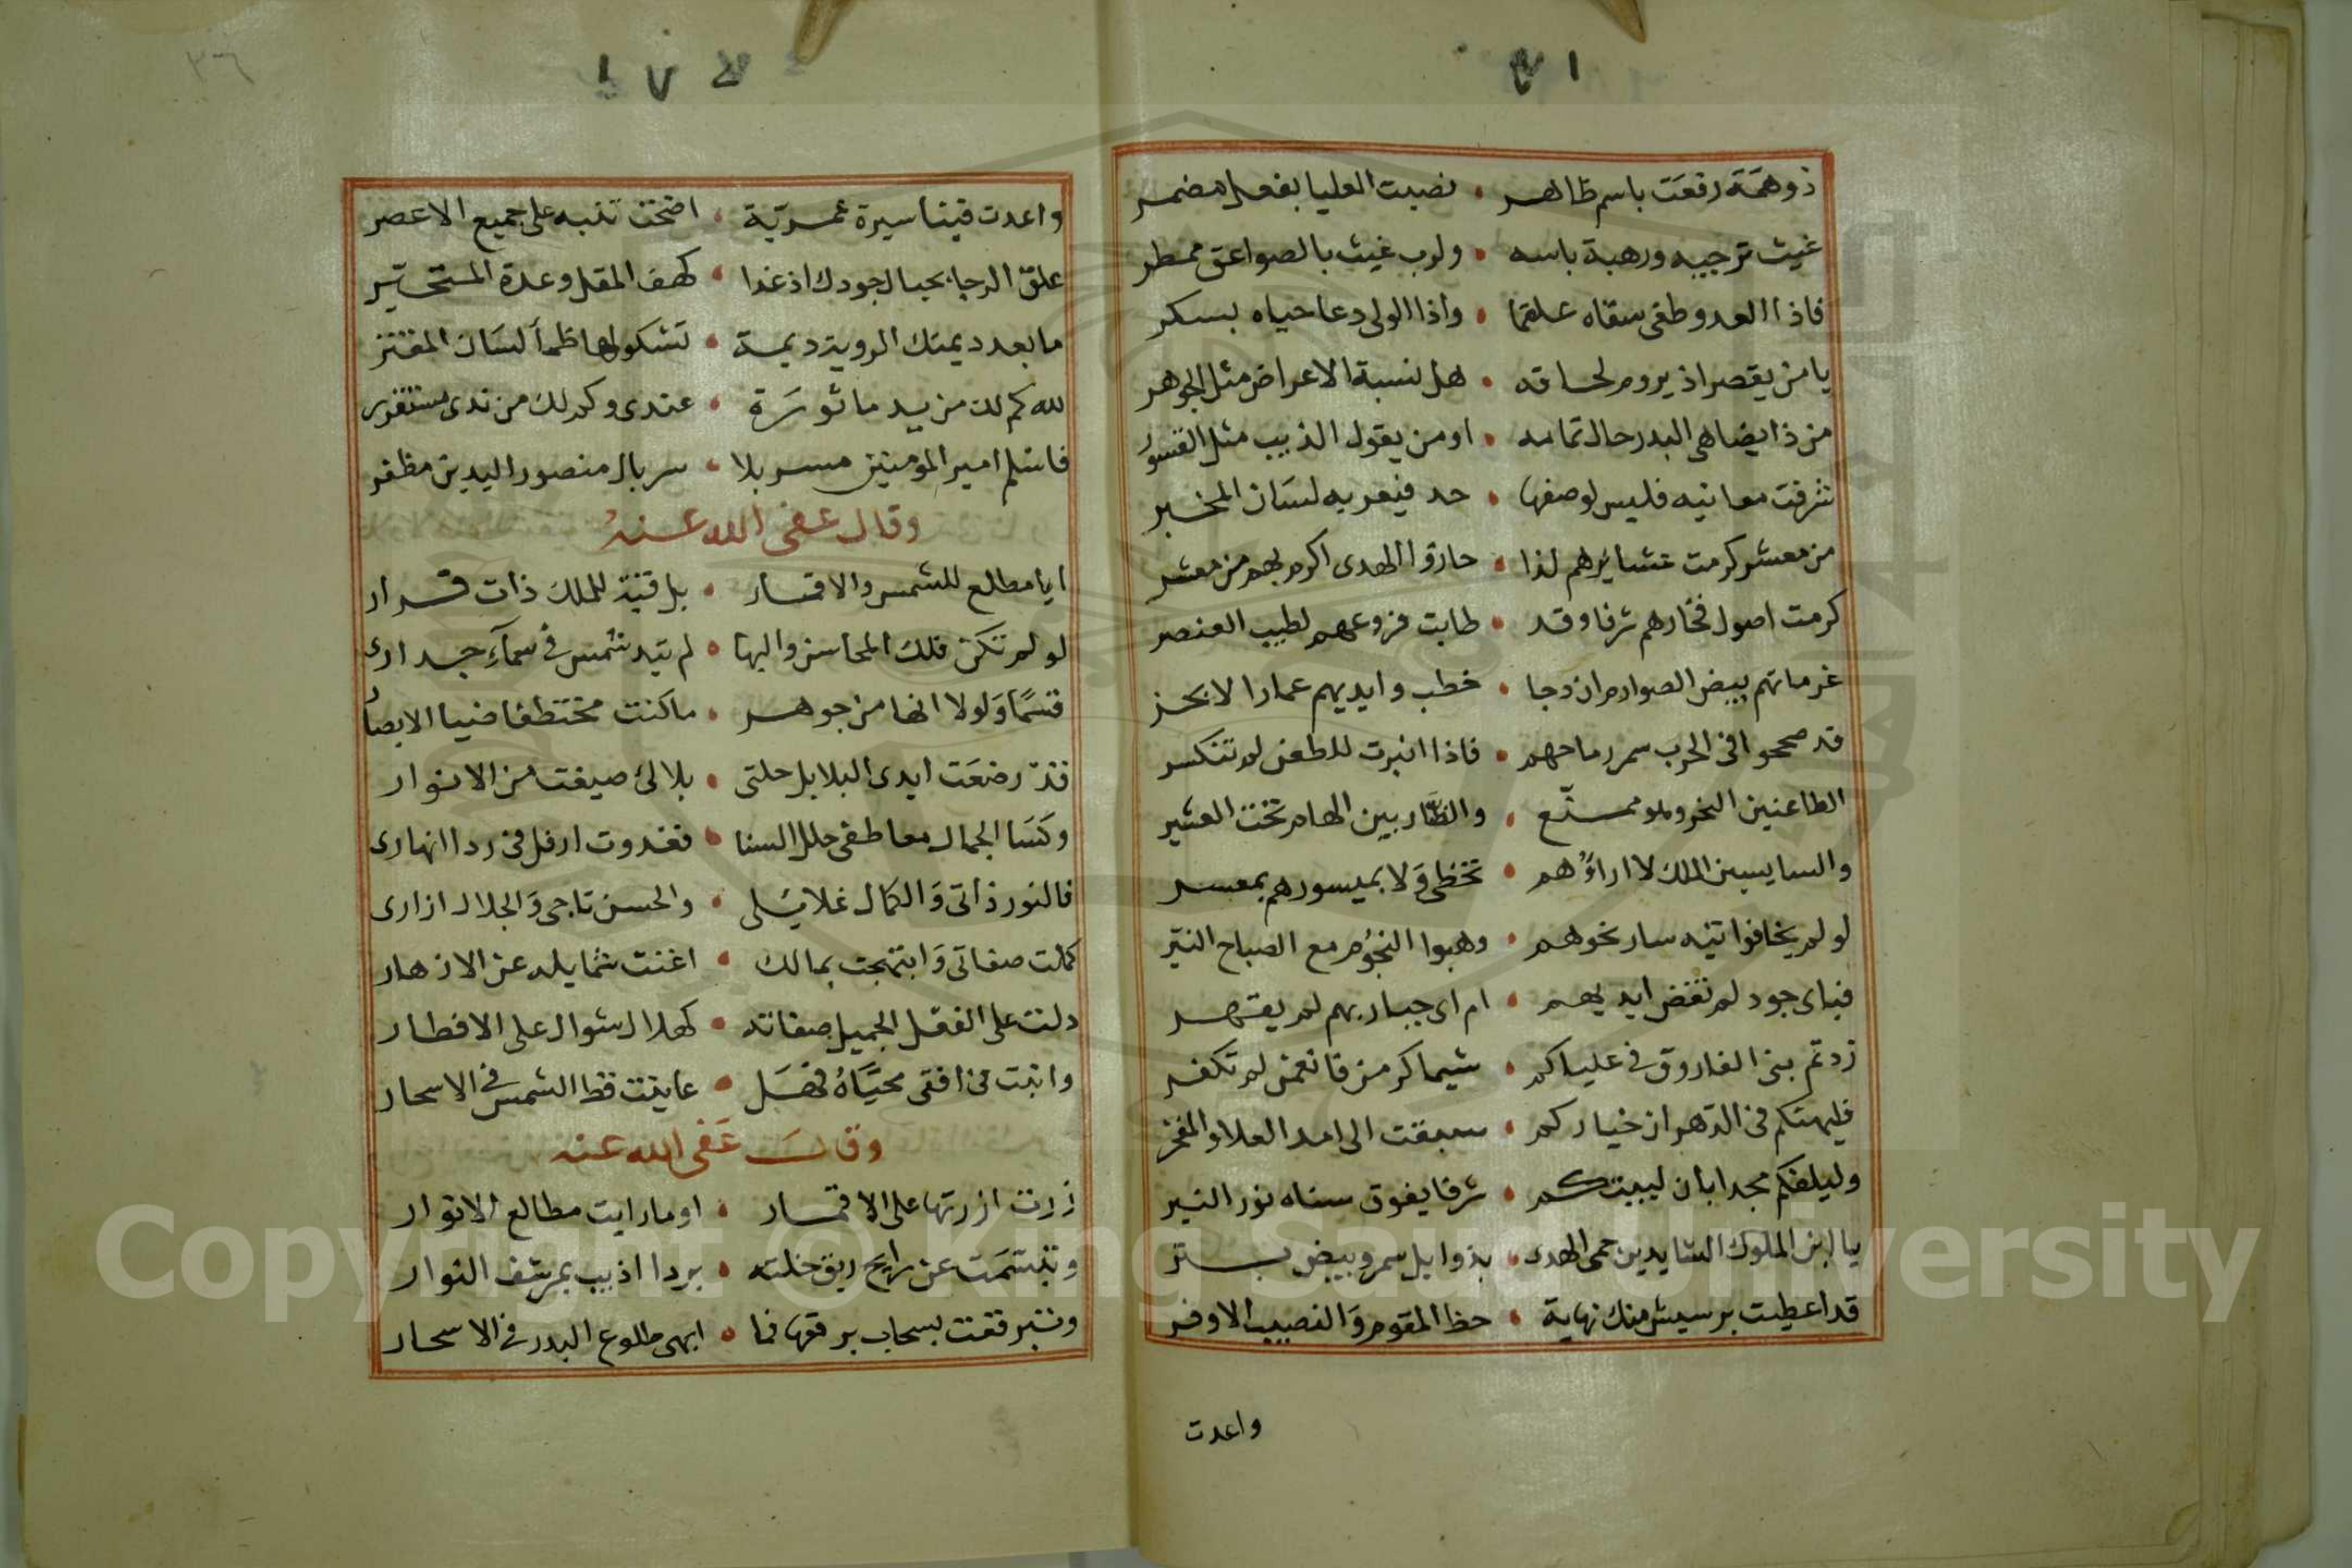 ذو همة رفعت باسم ظاهر • نصبت العليا بفعل مضمر
غيث ترجيه ورهبة باسه • ولرب غيث بالصواعق ممطر
فاذا العدو طغى سقاه علقما • واذا الولى دعا حياه بسكر
يا من يقصر اذ يروم لحاقه • هل نسبة الاعراض مثل الجوهر
من ذا يضاهى البدر حال تمامه • او من يقول الذيب مثل القسور
شرفت معانيه فليس لوصفها • حد فيعربه لسان المخبر
من معشر كرمت عشايرهم لذا • حازوا الهدى اكرم بهم من معشر
كرمت اصول فخارهم شرفا وقد • طابت فروعهم لطيب العنصر
عزماتهم بيض الصوارم ان دجا • خطب وايديهم عمارا الابحر
قد صححوا فى الحرب سمر رماحهم • فاذا انبرت للطعن لم تتكسر
الطاعنين النحر وهو ممنع • والضاربين الهام تحت العثير
والسايسين الملك لا اراؤهم • تخطى ولا بميسورهم بمعسر
لو لم يخافوا تيه سار نحوهم • وهبوا النجوم مع الصباح النير
فباى جود لم تفض ايديهم • ام اى جبار بهم لم يقهر
زدتم بنى الفاروق فى علياكم • شيما كرمن فانعمن لم تكفر
فليهنكم فى الدهر ان خياركم • سبقت الى امد العلا والمفخر
وليلفكم مجد ابان لبيتكم • شرفا يفوق سناه نور النير
يا ابن الملوك الشايدين حمى الهدى • بذوابل سمر وبيض بتر
قد اعطيت برسيش منك نهاية • حظ المقوم والنصيب الاوفر
واعدت
٣٦
واعدت فينا سيرة عمرية • اضحت تنبه على جميع الاعصر
علق الرجا بحبال جودك اذ غدا • كهف المقل وعدة المتحير
ما بعد ديمتك الروية ديمة • تشكو لها ظمأ لسان المقتر
لله كم لك من يد ماثورة • عندى وكم لك من ندى مستغزر
فاسلم امير المومنين مسربلا • سربال منصور اليدين مظفر
وقال عفى الله عنه
ايا مطلع للشمس والاقمار • بل قنة للملك ذات قرار
لو لم تكن فلك المحاسن والبها • لم تبد شمس فى سمآء جدارى
قسما ولولا انها من جوهر • ما كنت مختطفا ضيا الابصار
قد رضعت ايدى البلابل حلتى • بلالئ صيغت من الانوار
وكسا الجمال معاطفى حلل السنا • فغدوت ارفل فى ردا انهارى
فالنور ذاتى والكمال غلايلى • والحسن تاجى والجلال ازارى
كملت صفاتى وابتهجت بمالك • اغنت شمايله عن الازهار
دلت على الفعل الجميل صفاته • كهلال شوال على الافطار
وانبت فى افقى محياه فهل • عاينت قط الشمس فى الاسحار
وقال عفى الله عنه
زرت ازرتها على الاقمار • او ما رايت مطالع الانوار
وتبسمت عن رايح ريق خلته • بردا اذيب بمرشف النوار
وتبرقعت بسحاب برقعها فما • ابهى طلوع البدر فى الاسحار
Copyright © King Saud University